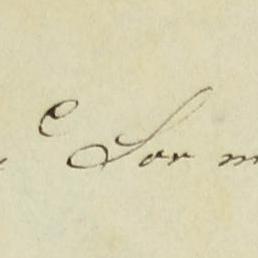 e Sor m